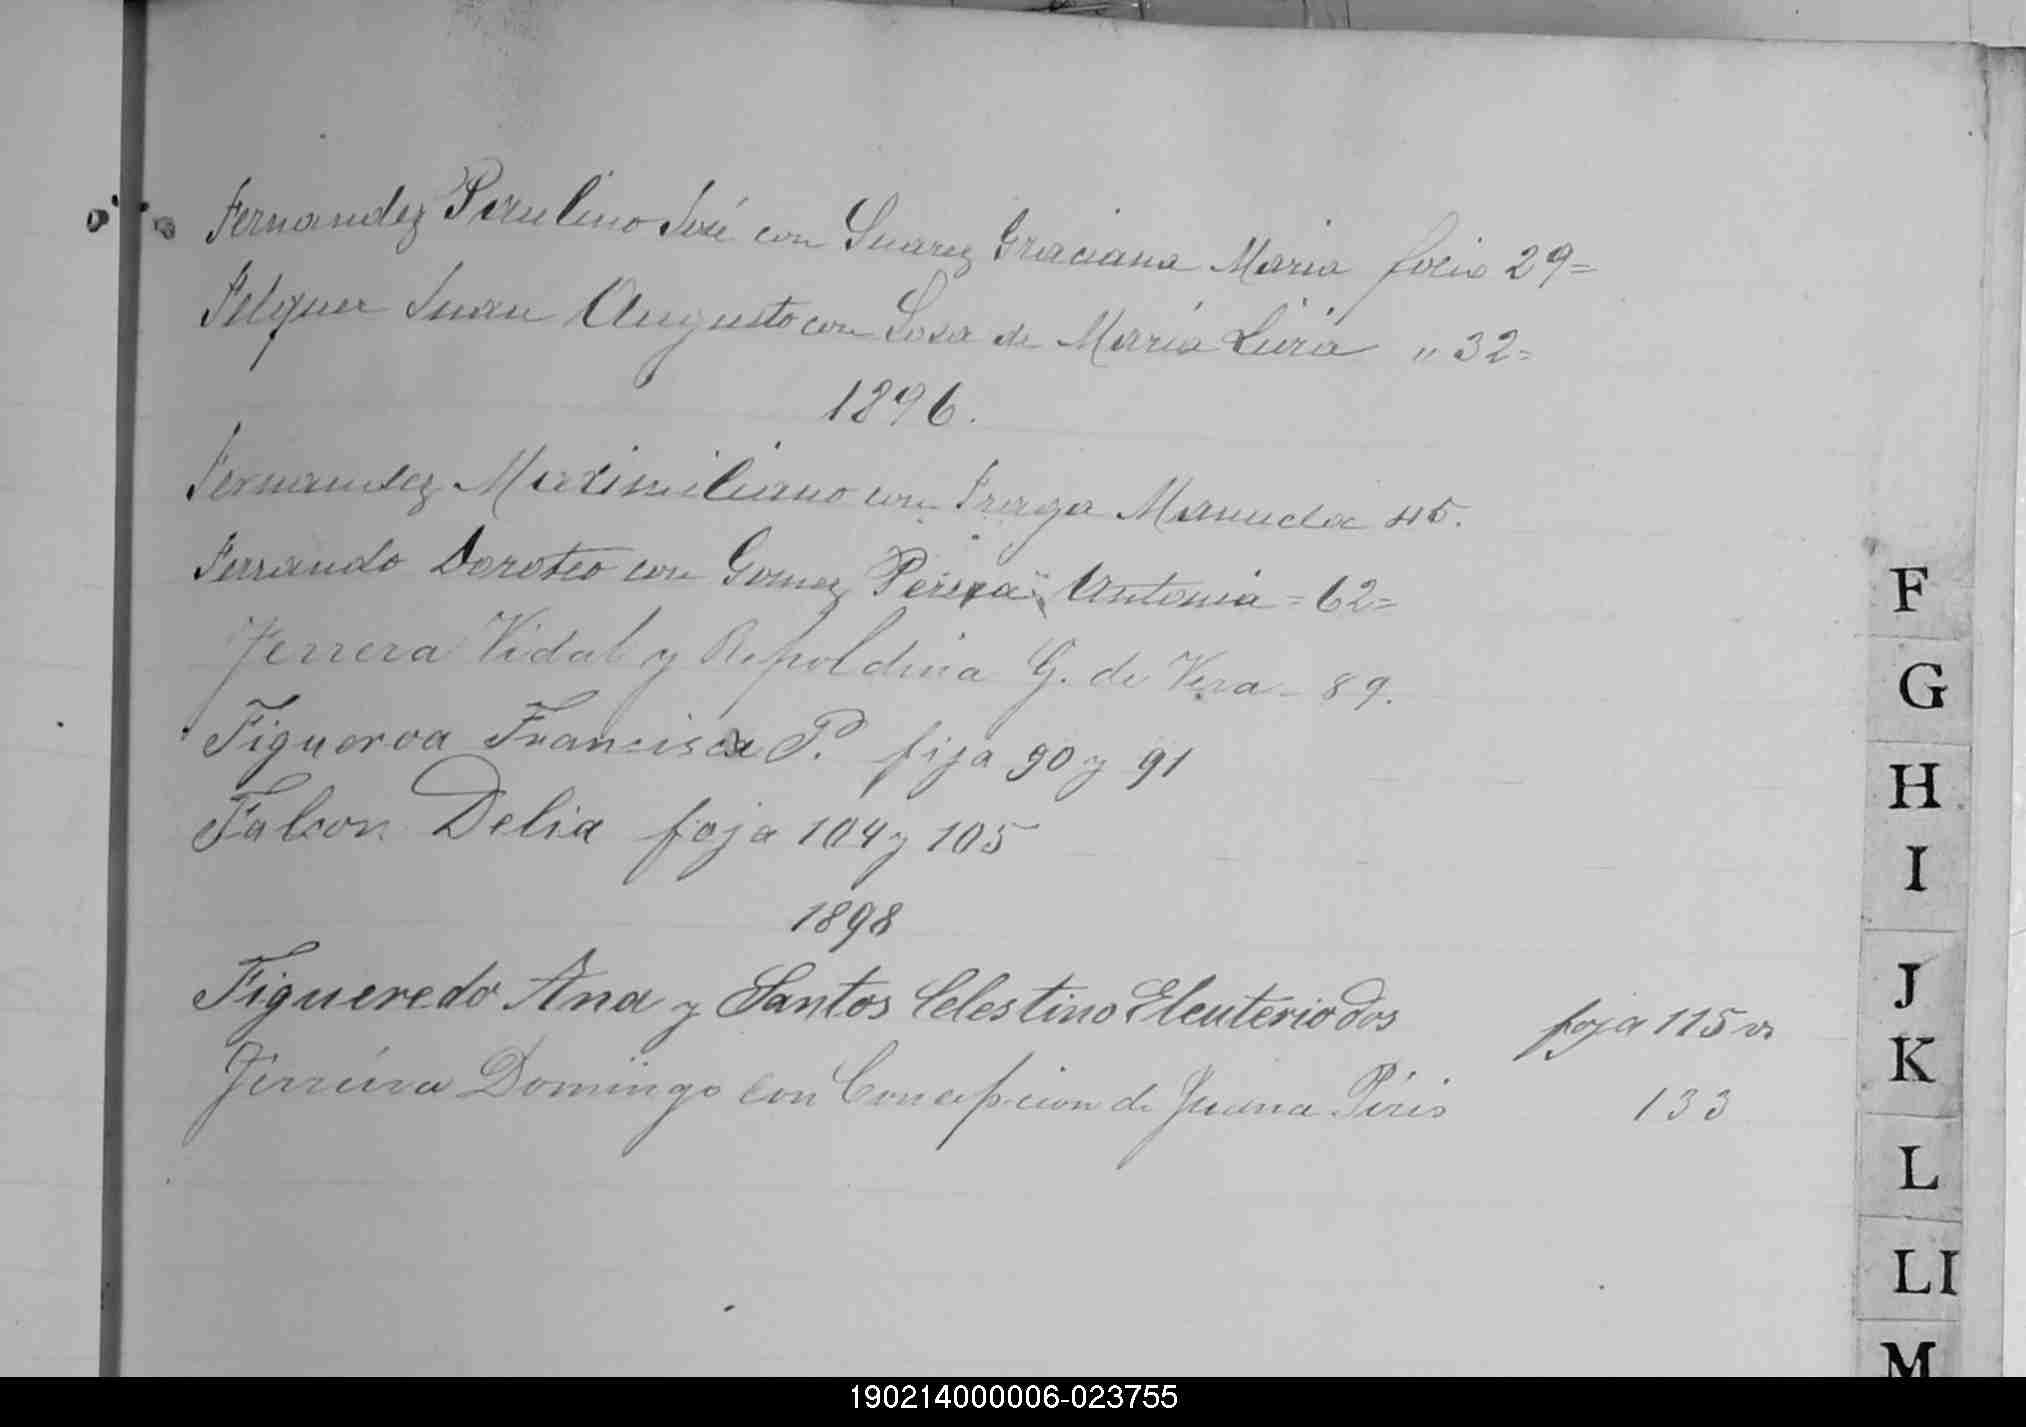 Fernandez Paulino José con Suarez Graciana Maria folio 29=
Juan Augusto con Sosa de Maria Liria " 32=
1896.
Fernandez Maximiliano con Fraga Manuela 45.
Ferrando Doroteo con Gomez Pereza Antonia = 62=
Ferrera Vidal y G. de Vera - 89.
Figueroa Francisca P. foja 90 y 91
Falcon Delia foja 104 y 105
1898
Figueredo Ana y Santos Celestino Eleuterio dos foja 115 v
Ferreira Domingo con Concepcion de Juana Piris 133
F
G
H
I
J
K
L
LI
M
190214000006-023755